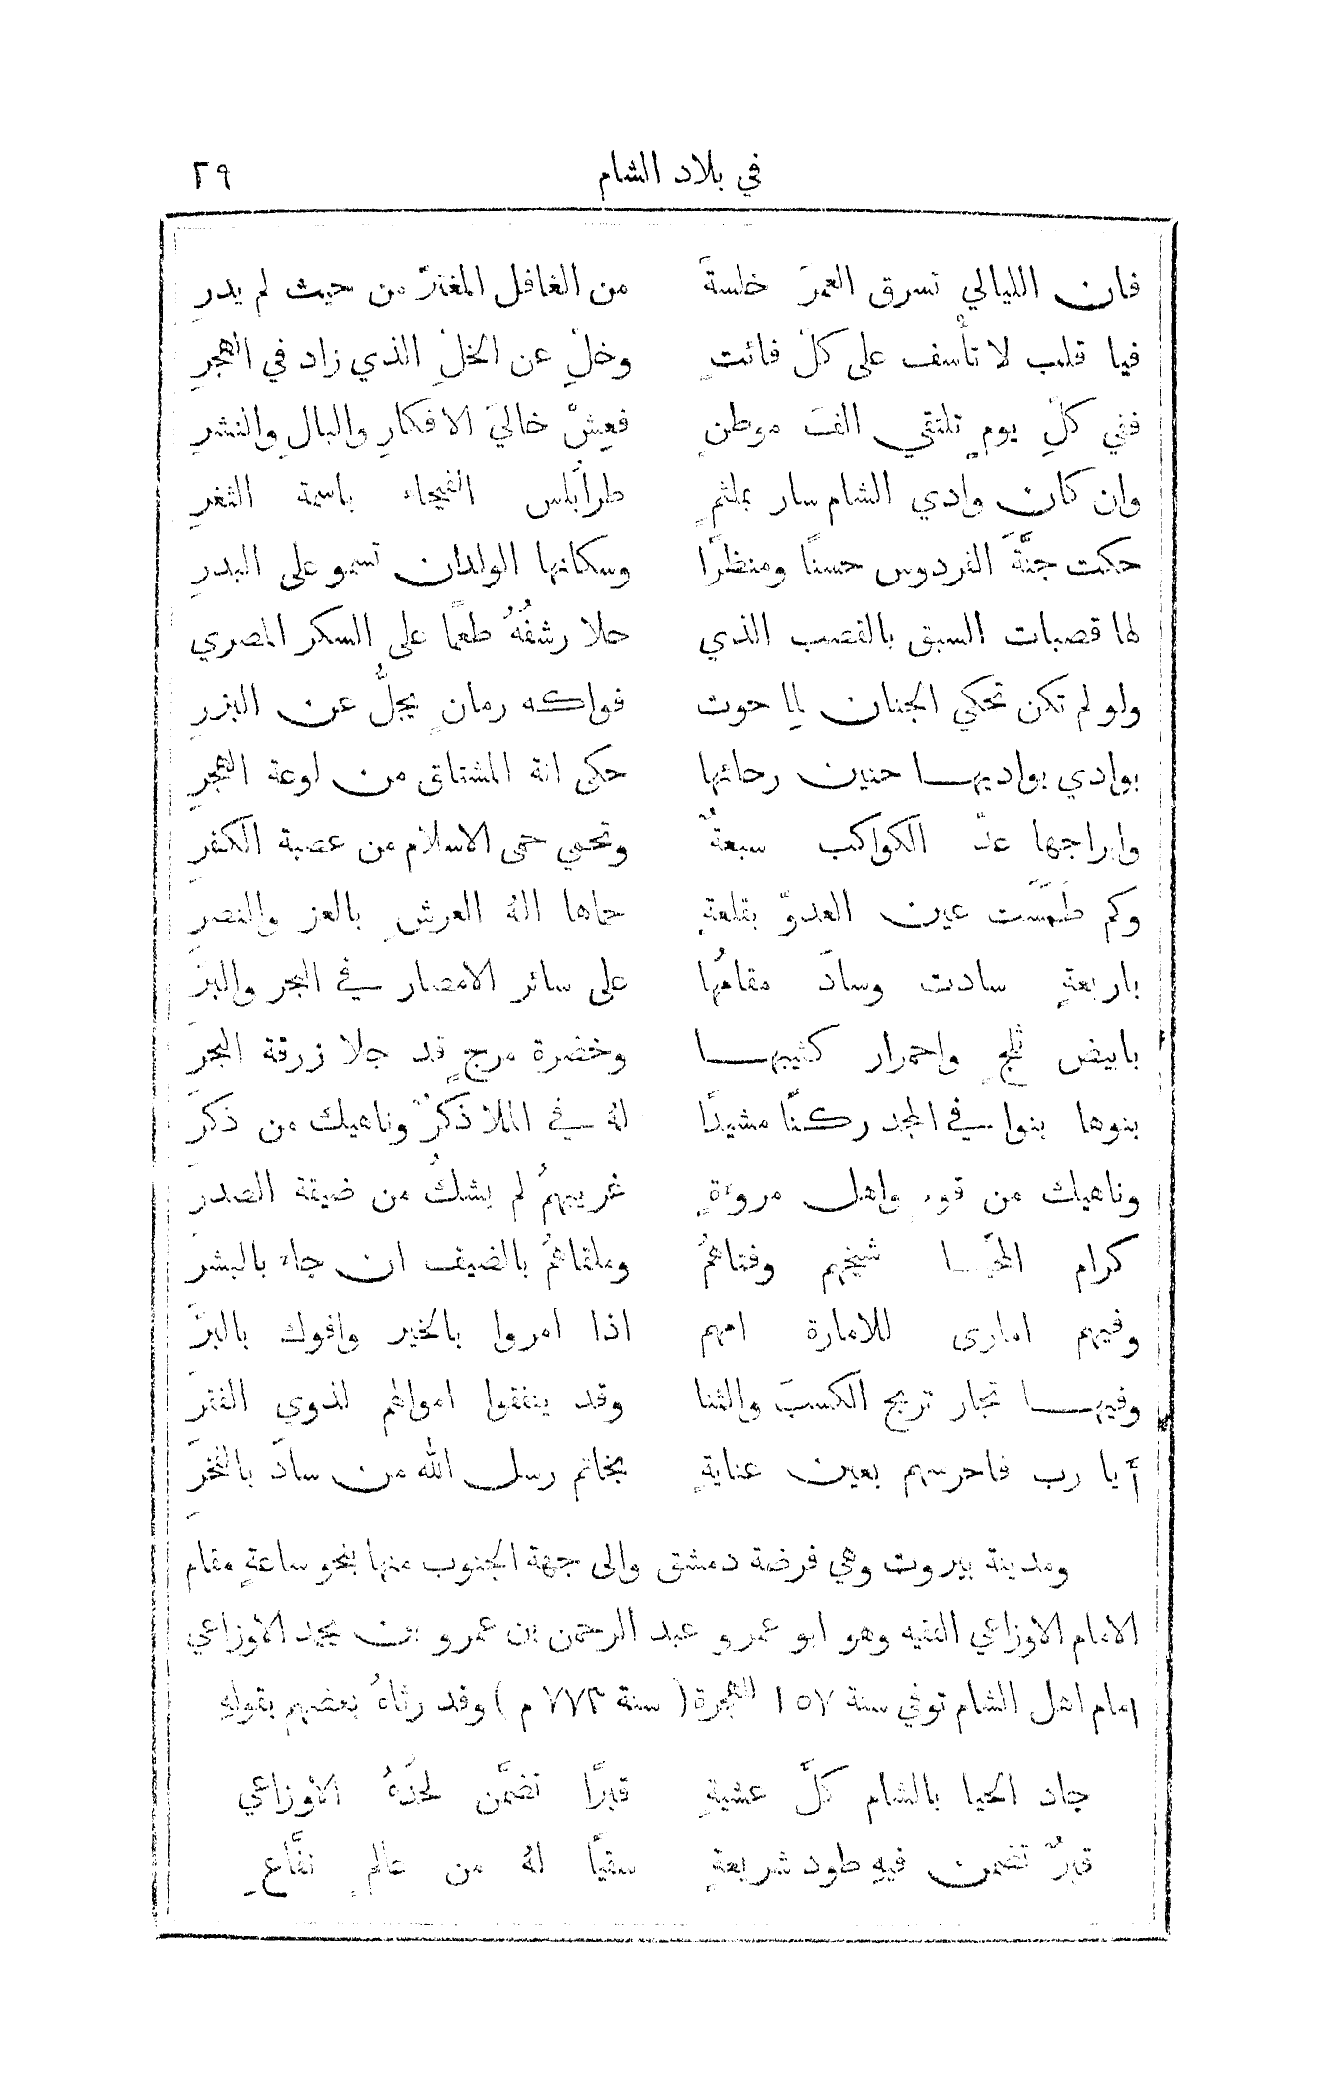 في بلاد الشام ٢٩
فان الليالي تسرق العمرَ خلسةً من الغافل المغترّ من حيث لم يدرِ
فيا قلب لا تأسف على كلّ فائتٍ وخلِّ عن الخلّ الذي زاد في الهجرِ
ففي كلّ يومٍ تلتقي الفَ موطنٍ فعِشْ خاليَ الافكارِ والبالِ والنشرِ
وان كان وادي الشام سار بملثمٍ طرابلس الفيحاء باسمة الثغرِ
حكت جنَّةَ الفردوس حسنًا ومنظرًا وسكانها الولدان تسمو على البدرِ
لها قصبات السبق بالقصب الذي حلا رشفُهُ طعمًا على السكر المصري
ولو لم تكن تحكي الجنان لما حوت فواكه رمانٍ يجلُّ عن البزرِ
بوادي بواديها حنين رحائها حكى انة المشتاق من لوعة الهجرِ
وابراجها عدّ الكواكب سبعةٌ وتحمي حمى الاسلام من عصبة الكفرِ
وكم طَمَسَت عين العدوّ بقلعةٍ حماها الهُ العرشِ بالعز والنصرِ
باربعةٍ سادت وسادَ مقامُها على سائر الامصار في البحر والبرِّ
بابيض ثلجٍ واحمرار كثيبها وخضرة مرجٍ قد جلا زرقة البحرِ
بنوها بنوا في المجد ركنًا مشيدًا لهُ في الملا ذكرٌ وناهيك من ذكرِ
وناهيك من قومٍ واهل مروةٍ غريبهمُ لم يشكُ من ضيقة الصدرِ
كرام المحيَّا شيخهم وفتاهمُ وملقاهمُ بالضيف ان جاء بالبشرِ
وفيهم امارى للامارة امهم اذا امروا بالخير وافوك بالبرِّ
وفيها تجار تربح الكسبَ والثنا وقد ينفقوا اموالهم لذوي الفقرِ
أيا رب فاحرسهم بعين عنايةٍ بخاتم رسل الله من سادَ بالفخرِ
ومدينة بيروت وهي فرضة دمشق والى جهة الجنوب منها بنحو ساعةٍ مقام
الامام الاوزاعي الفقيه وهو ابو عمرو عبد الرحمن بن عمرو بن يحمد الاوزاعي
امام اهل الشام توفي سنة ١٥٧ للهجرة (سنة ٧٧٣ م) وقد رثاهُ بعضهم بقولهِ
جاد الحيا بالشام كلَّ عشيةٍ قبرًا تضمَّن لحدُهُ الاوزاعي
قبرٌ تضمن فيهِ طود شريعةٍ سقيًا لهُ من عالمٍ نفَّاعِ